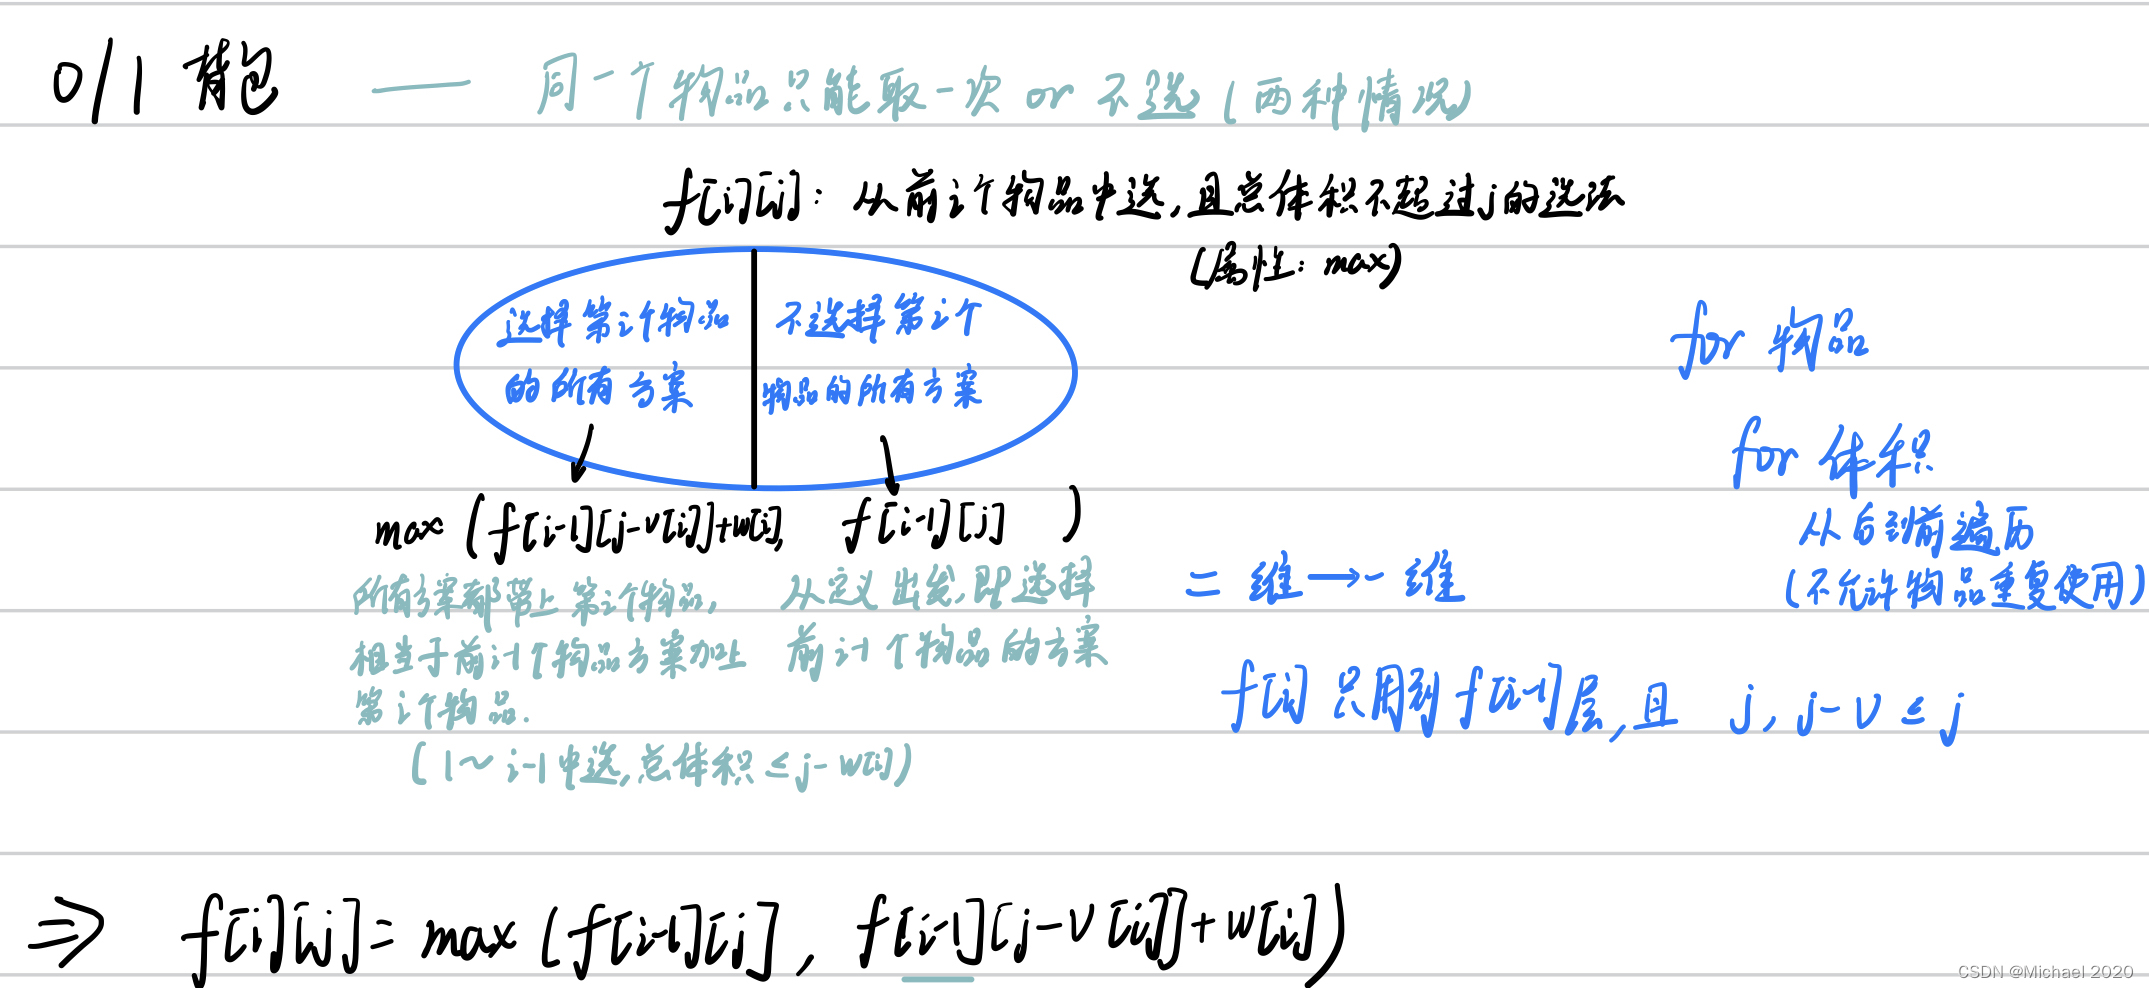 0/1 背包 —— 同一个物品只能取一次 or 不选 (两种情况)
f[i][j]: 从前i个物品中选,且总体积不超过j的选法
(属性: max)
选择第i个物品
的所有方案
不选择第i个
物品的所有方案
max (f[i-1][j-v[i]]+w[i], f[i-1][j] )
所有方案都带上第i个物品,
相当于前i-1个物品方案加上
第i个物品.
(1~i-1中选,总体积≤j-w[i])
从定义出发,即选择
前i-1个物品的方案
for 物品
for 体积
从后到前遍历
(不允许物品重复使用)
二维→一维
f[i] 只用到 f[i-1]层,且 j, j-v ≤ j
⇒ f[i][j]= max (f[i-1][j], f[i-1][j-v[i]]+w[i])
CSDN @Michael 2020